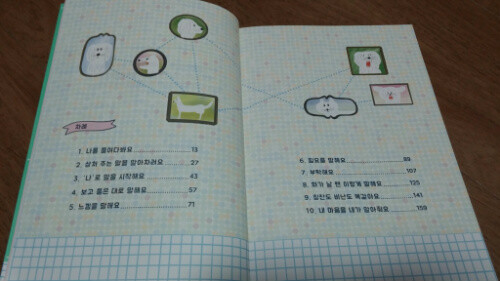 차례
1. 나를 돌아다봐요 13
2. 상처 주는 말을 알아차려요 27
3. '나'로 말을 시작해요 43
4. 보고 들은 대로 말해요 57
5. 느낌을 말해요 71
6. 필요를 말해요 89
7. 부탁해요 107
8. 화가 날 땐 이렇게 말해요 125
9. 칭찬도 비난도 똑같아요 141
10. 내 마음을 내가 알아줘요 159